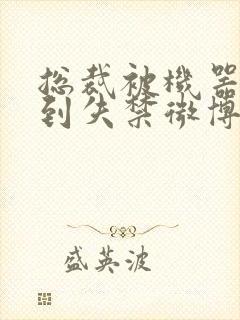 总裁被機器
到失禁微博
盛英波